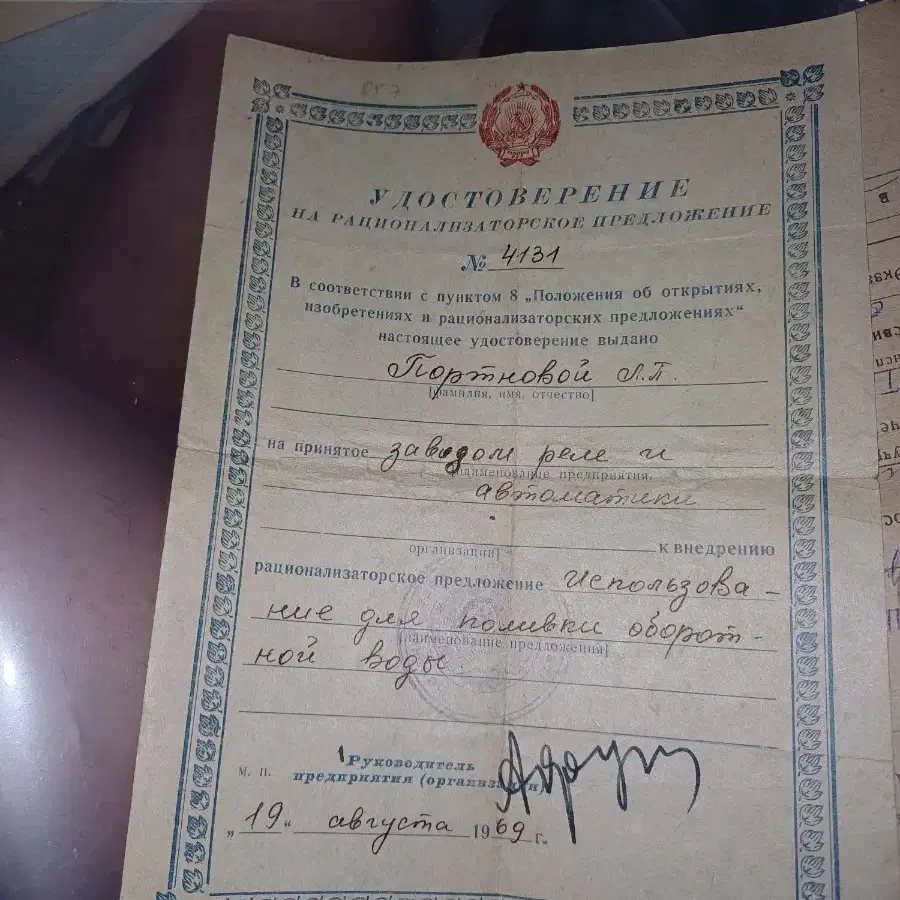 УДОСТОВЕРЕНИЕ
НА РАЦИОНАЛИЗАТОРСКОЕ ПРЕДЛОЖЕНИЕ
№ 4131
В соответствии с пунктом 8 „Положения об открытиях,
изобретениях и рационализаторских предложениях“
настоящее удостоверение выдано
Портновой Л.П.
[фамилия, имя, отчество]
на принятое заводом реле и
[наименование предприятия,
автоматики
организации]
к внедрению
рационализаторское предложение Использова-
ние для поливки оборот-
[наименование предложения]
ной воды.
Руководитель
М. П. предприятия (организации)
„19“ августа 1969 г.